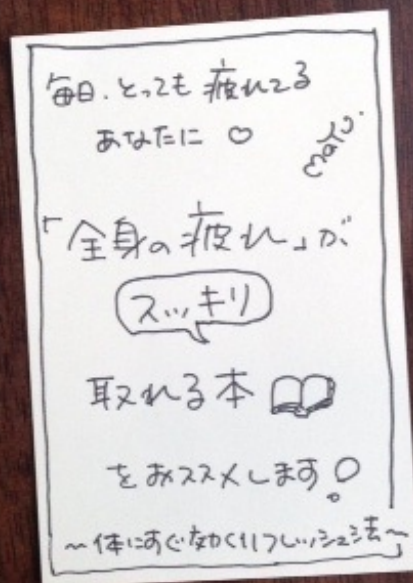 毎日、とっても疲れてる
あなたに♡
mayu.
「全身の疲れ」が
スッキリ
取れる本
をおススメします!
〜体にすぐ効くリフレッシュ法〜